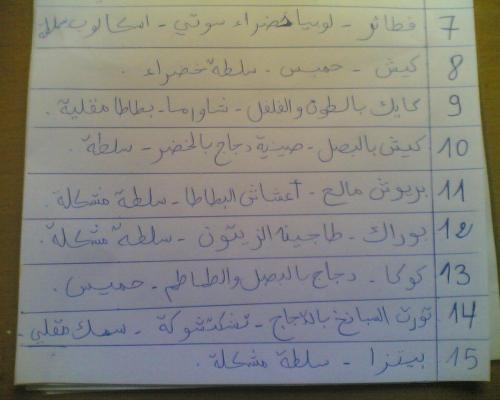 7 فطائر - لوبيا خضراء سوتي - اسكالوب سلطة
8 كيش - حميس - سلطة خضراء .
9 كايك بالطون والفلفل - شاورما - بطاطا مقلية .
10 كيش بالبصل - صينية دجاج بالخضر - سلطة .
11 بريوش مالح - أعشاش البطاطا - سلطة مشكلة .
12 بوراك - طاجين الزيتون - سلطة مشكلة .
13 كوكا - دجاج بالبصل والطماطم - حميس .
14 تورت السبانخ بالدجاج - تشكتشوكة - سمك مقلي -
15 بيتزا - سلطة مشكلة .